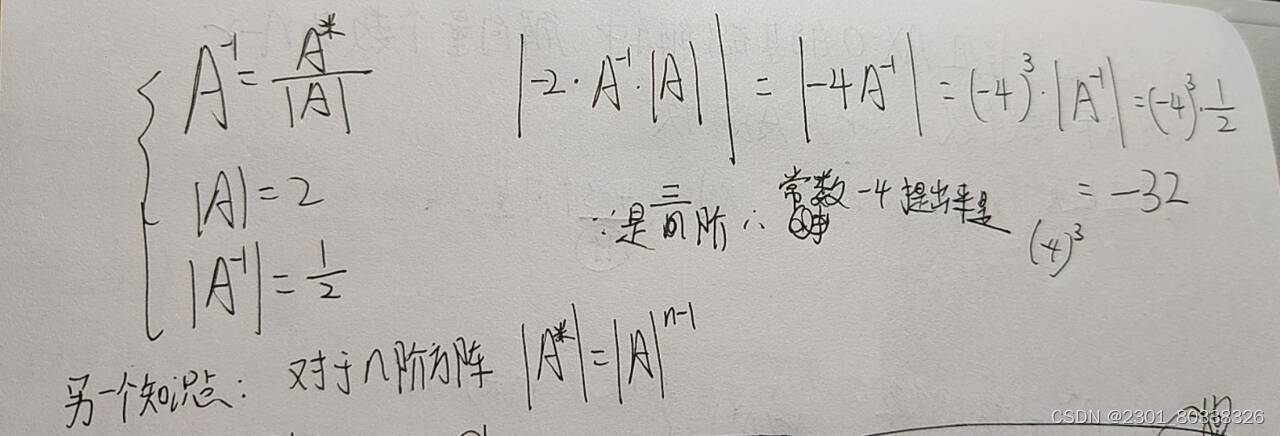 A⁻¹ = A*/|A|
|-2·A⁻¹·|A|| = |-4A⁻¹| = (-4)³·|A⁻¹| = (-4)³·1/2
= -32
|A| = 2
∵是三阶∴常数-4提出来是(-4)³
|A⁻¹| = 1/2
另一个知识点: 对于n阶方阵 |A*| = |A|ⁿ⁻¹
CSDN @2301_80338326